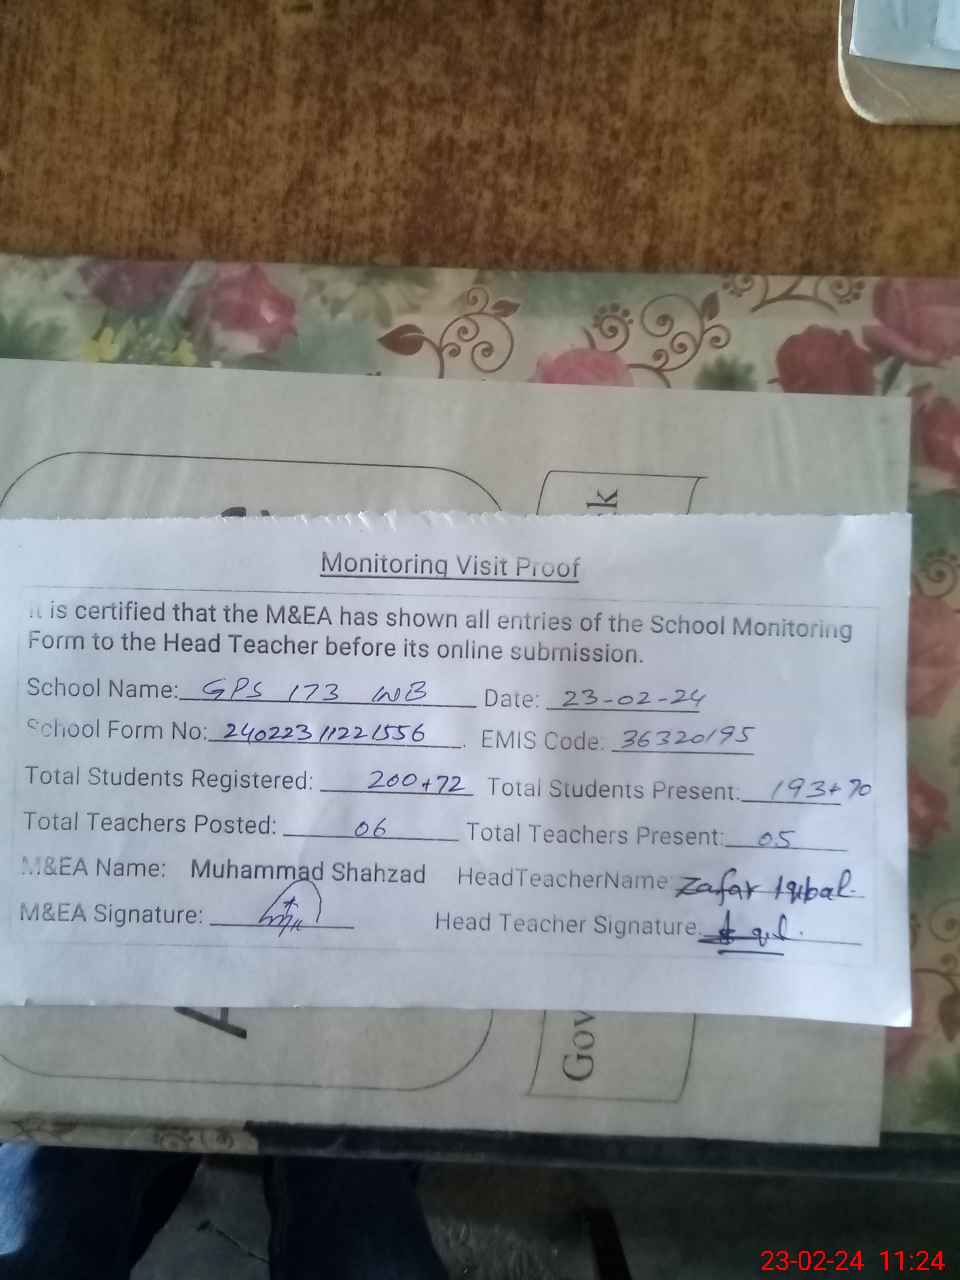 k
Monitoring Visit Proof
It is certified that the M&EA has shown all entries of the School Monitoring
Form to the Head Teacher before its online submission.
School Name: GPS 173 WB Date: 23-02-24
School Form No: 24022311221556 EMIS Code: 36320195
Total Students Registered: 200+72 Total Students Present: 193+70
Total Teachers Posted: 06 Total Teachers Present: 05
M&EA Name: Muhammad Shahzad HeadTeacherName: Zafar Iqbal.
M&EA Signature: Head Teacher Signature:
Gov
23-02-24 11:24